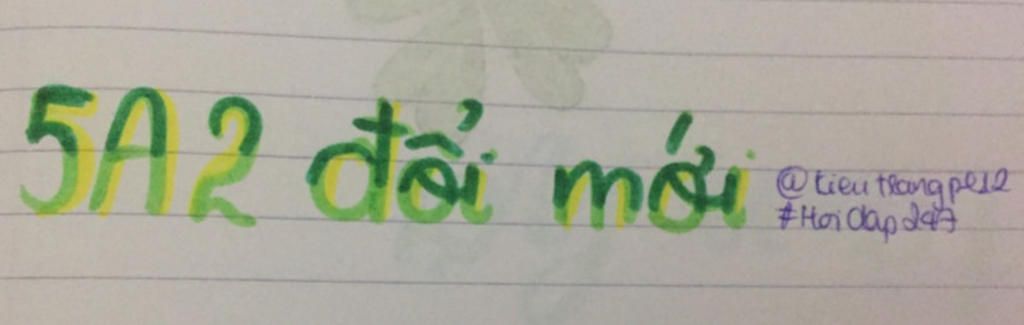 5A2 đổi mới
@tieutrangpl12
#Hoidap247